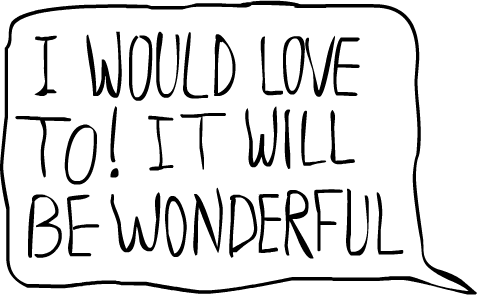 I WOULD LOVE
TO! IT WILL
BE WONDERFUL